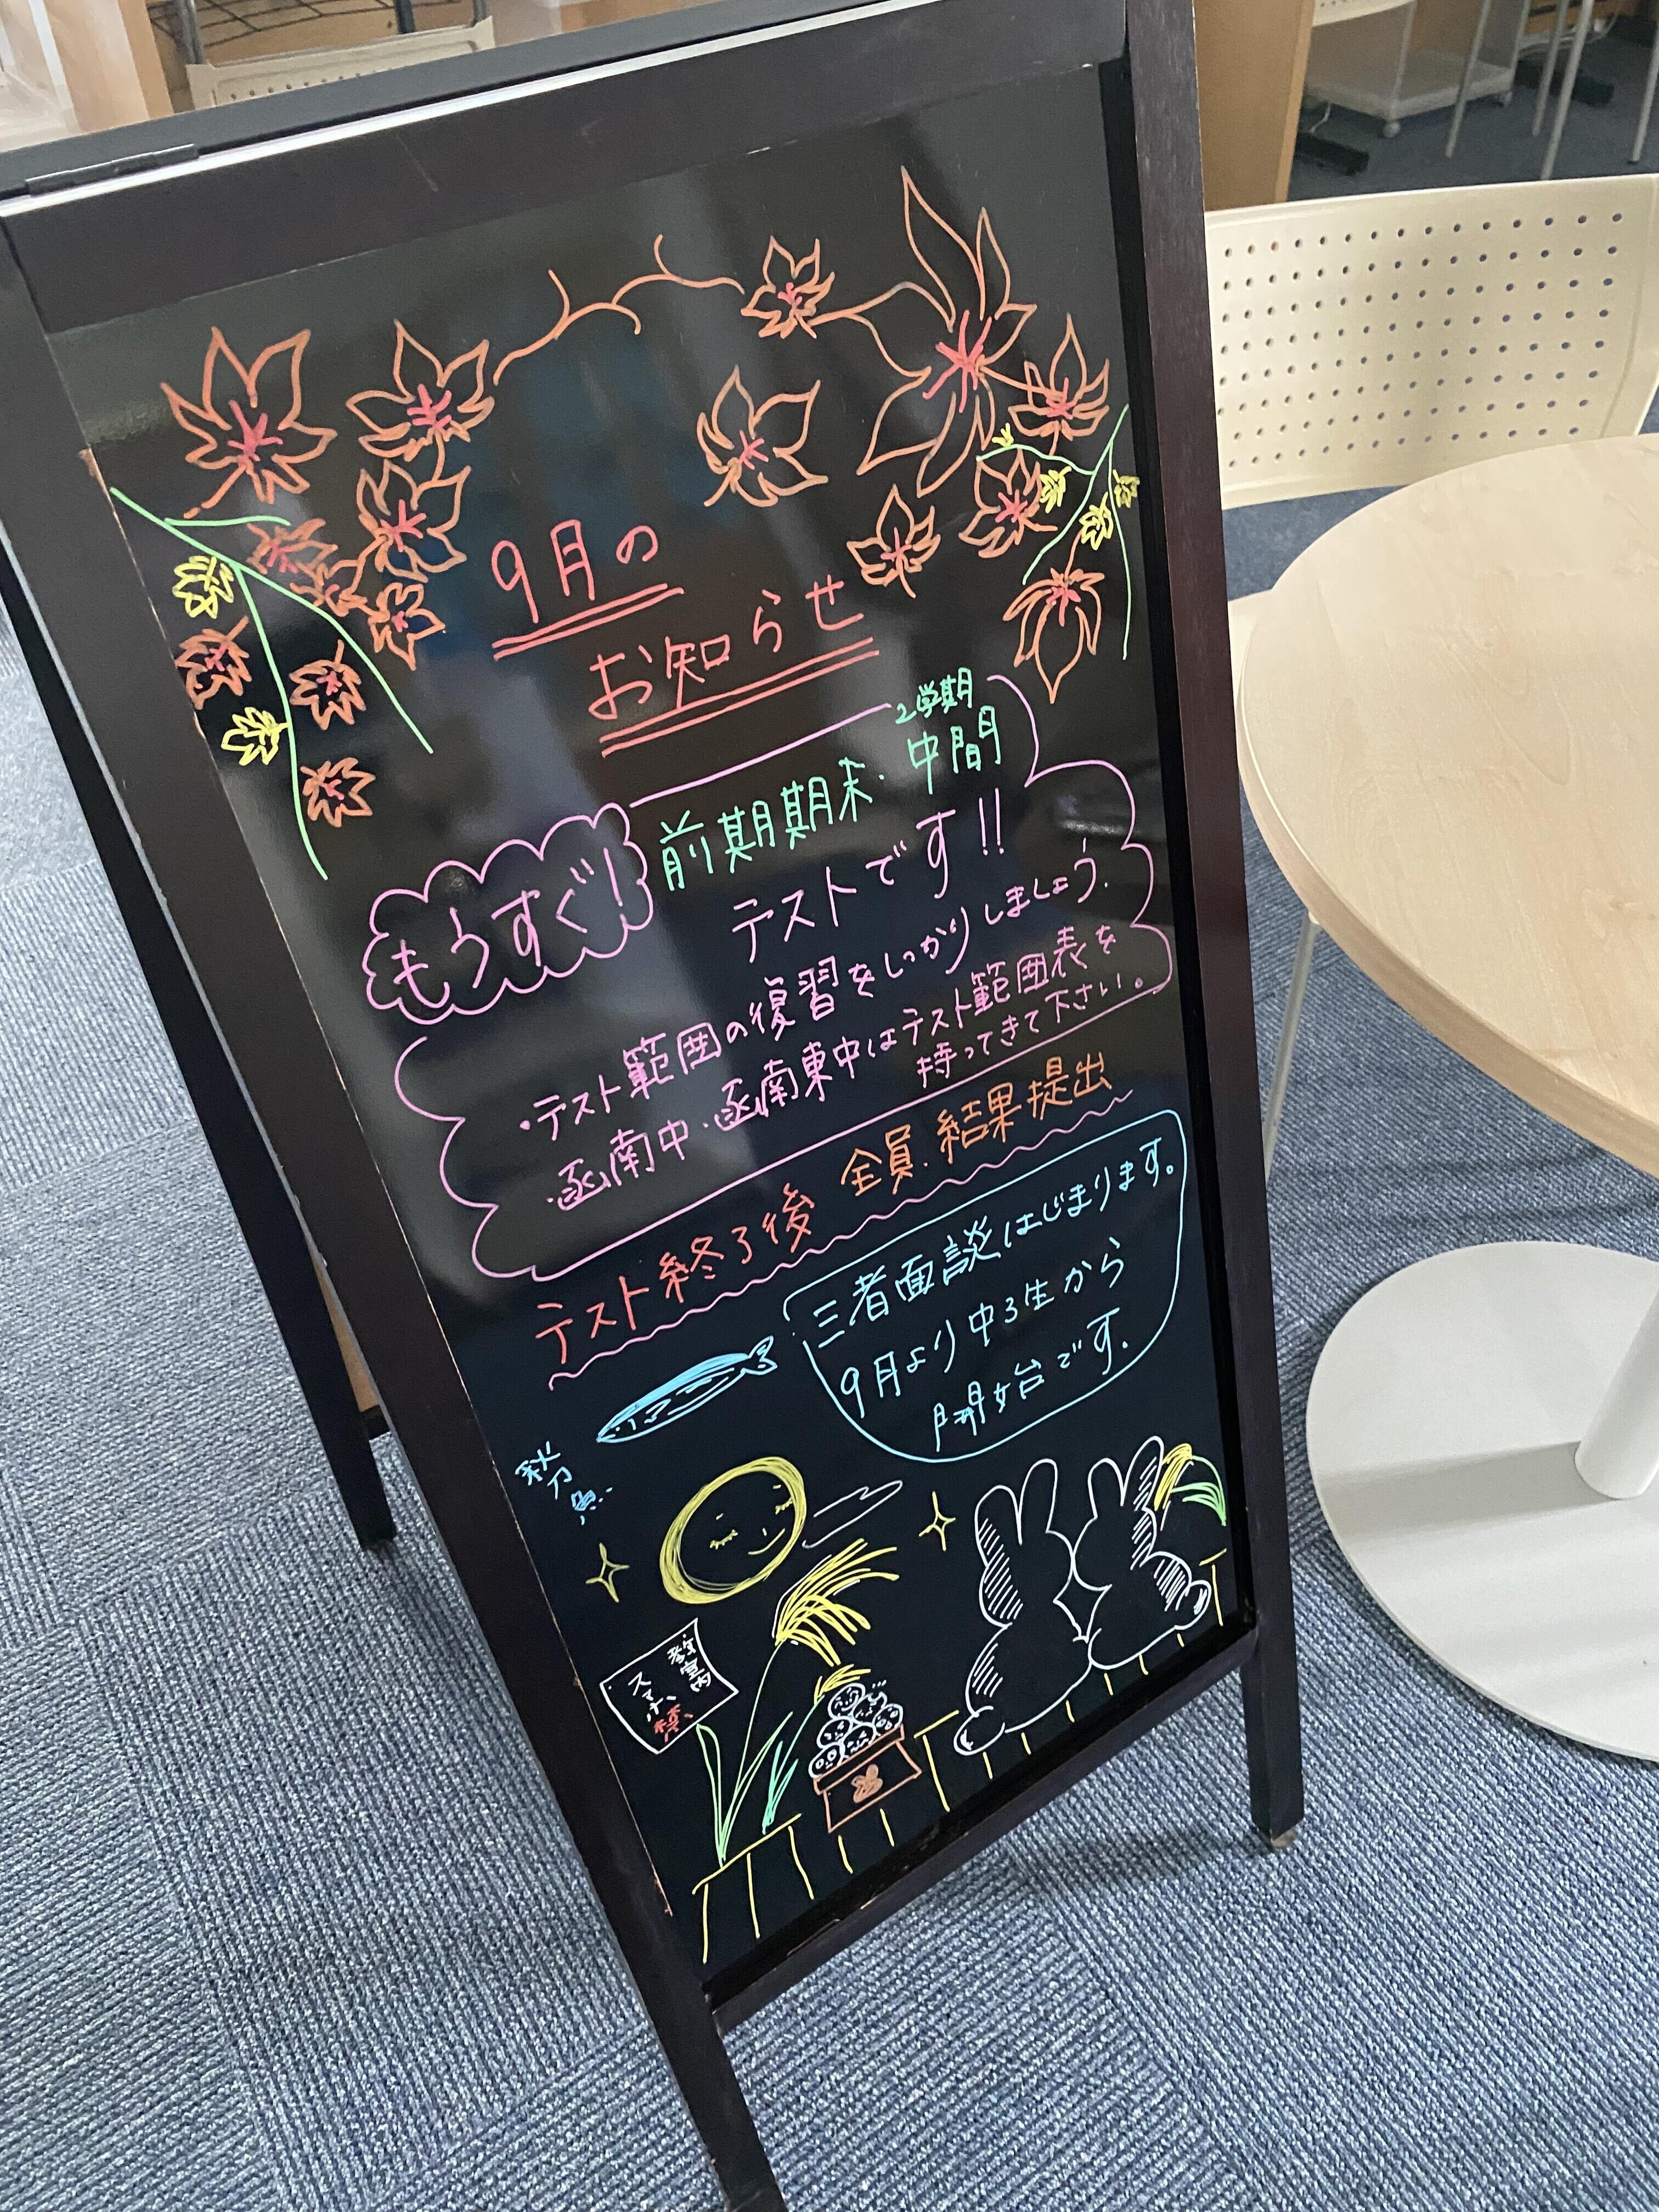 9月の
お知らせ
もうすぐ!
2学期
前期期末・中間
テストです!!
・テスト範囲の復習をしっかりしましょう.
・函南中・函南東中はテスト範囲表を
持ってきて下さい。
テスト終了後 全員.結果提出
三者面談はじまります。
9月より中3生から
開始台です.
秋刀魚
教室内
スマホ禁